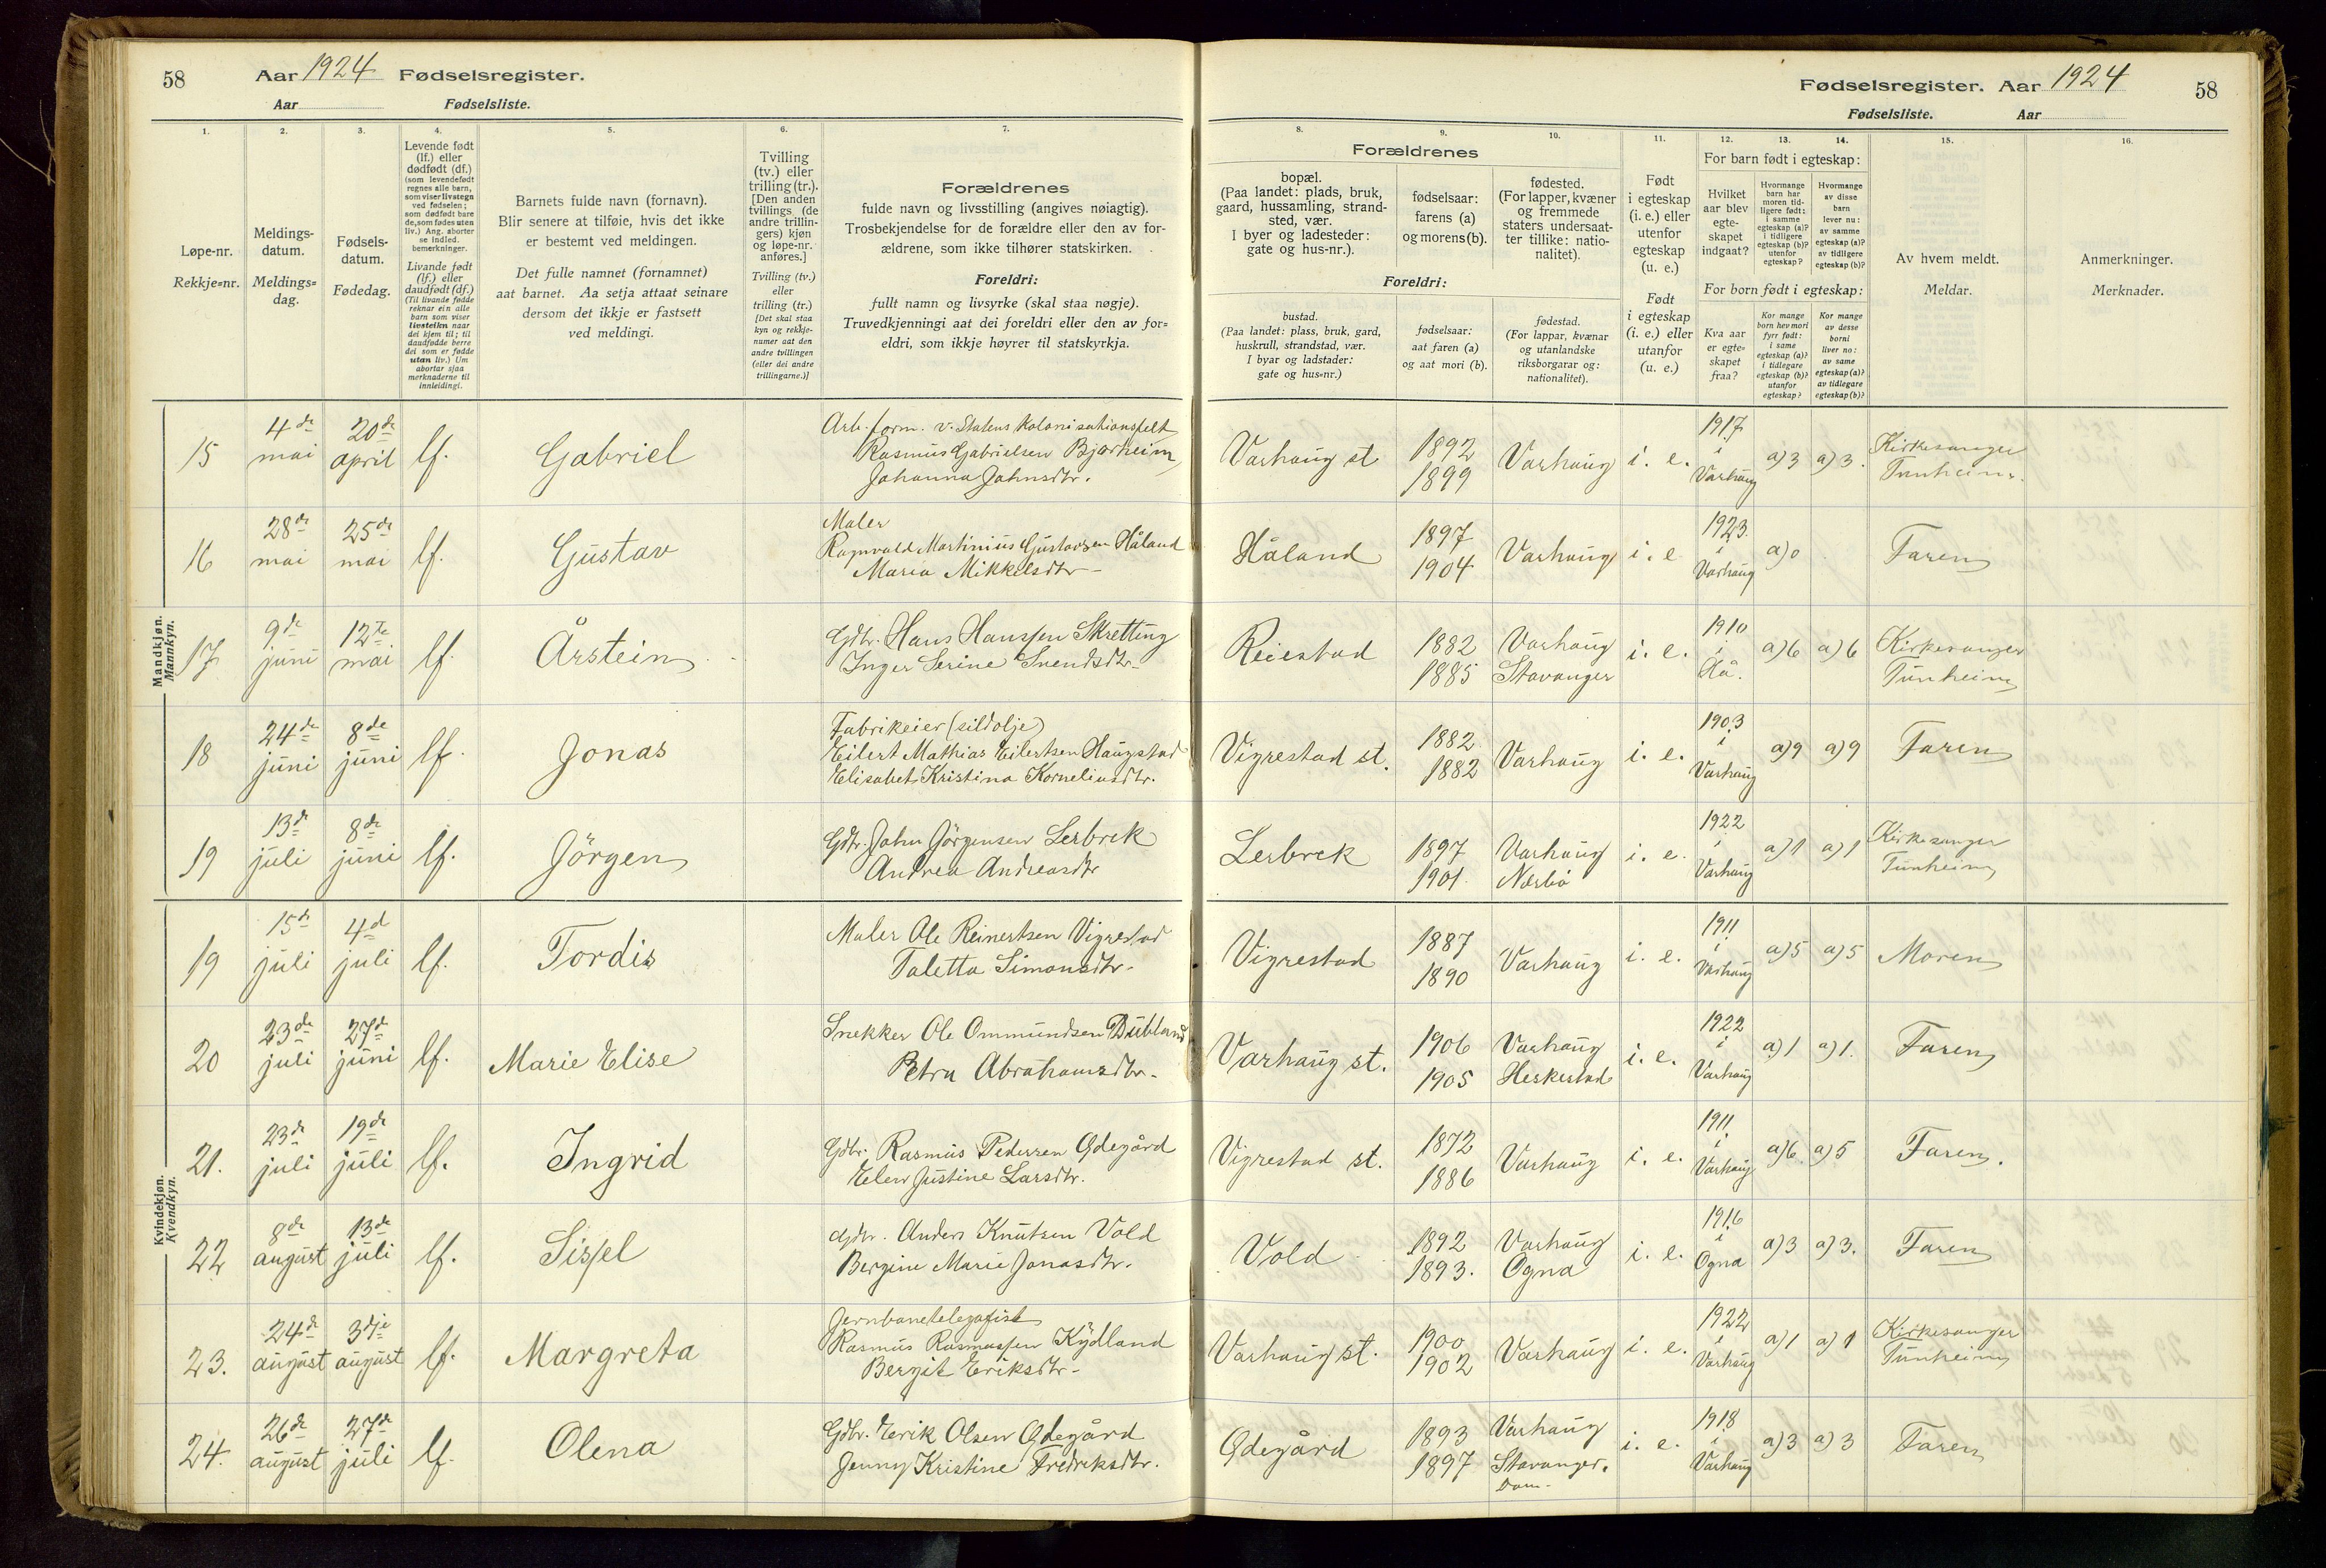 58 Aar 1924 Fødselsregister.
Aar Fødselsliste.
Fødselsregister. Aar 1924 58
Fødselsliste. Aar
1.
Løpe-nr.
Rekkje=nr.
2.
Meldings-
datum.
Meldings=
dag.
3.
Fødsels-
datum.
Fødedag.
4.
Levende født
(lf.) eller
dødfødt (df.)
(som levendefødt
regnes alle barn,
som viser livstegn
ved fødselen;
som dødfødt bare
de, som fødes uten
liv.) Ang. aborter
se indled.
bemerkninger.
Livande født
(lf.) eller
daudfødt (df.)
(Til livande fødde
reknar ein alle
barn som viser
livsteikn naar
dei kjem til; til
daudfødde berre
dei som er fødde
utan liv.) Um
abortar sjaa
merknaderne til
innleidingi.
5.
Barnets fulde navn (fornavn).
Blir senere at tilføie, hvis det ikke
er bestemt ved meldingen.
Det fulle namnet (fornamnet)
aat barnet. Aa setja attaat seinare
dersom det ikkje er fastsett
ved meldingi.
6.
Tvilling
(tv.) eller
trilling (tr.).
[Den anden
tvillings (de
andre trillin-
gers) kjøn
og løpe-nr.
anføres.]
Tvilling (tv.)
eller
trilling (tr.)
[Det skal staa
kyn og rekkje-
numer aat den
andre tvillingen
(eller dei andre
trillingarne.)]
7.
Forældrenes
fulde navn og livsstilling (angives nøiagtig).
Trosbekjendelse for de forældre eller den av for-
ældrene, som ikke tilhører statskirken.
Foreldri:
fullt namn og livsyrke (skal staa nøgje).
Truvedkjenningi aat dei foreldri eller den av for=
eldri, som ikkje høyrer til statskyrkja.
Forældrenes
8.
bopæl.
(Paa landet: plads, bruk,
gaard, hussamling, strand-
sted, vær.
I byer og ladesteder:
gate og hus-nr.).
9.
fødselsaar:
farens (a)
og morens (b).
10.
fødested.
(For lapper, kvæner
og fremmede
staters undersaat-
ter tillike: natio-
nalitet).
Foreldri:
bustad.
(Paa landet: plass, bruk, gard,
huskrull, strandstad, vær.
I byar og ladstader:
gate og hus=nr.)
fødselsaar:
aat faren (a)
og aat mori (b).
fødestad.
(For lappar, kvænar
og utanlandske
riksborgarar og:
nationalitet).
11.
Født
i egteskap
(i. e.) eller
utenfor
egteskap
(u. e.)
Født
i egteskap
(i. e.) eller
utanfor
(u. e.)
12. 13. 14.
For barn født i egteskap:
Hvilket
aar blev
egte-
skapet
indgaat?
Hvormange
barn har
moren tid-
ligere født:
i samme
egteskap (a)?
i tidligere
egteskap (b)?
utenfor
egteskap?
Hvormange
av disse
barn
lever nu:
av samme
egteskap (a)?
av tidligere
egteskap (b)?
For born født i egteskap:
Kva aar
er egte=
skapet
fraa?
Kor mange
born hev mori
fyrr født:
i same
egteskap (a)?
i tidlegare
egteskap (b)?
utanfor
egteskap?
Kor mange
av desse
borni
liver no:
av same
egteskap (a)?
av tidlegare
egteskap (b)?
15.
Av hvem meldt.
Meldar.
16.
Anmerkninger.
Merknader.
Mandkjøn.
Mannkyn.
15 4de mai 20de april lf. Gabriel
Arb. form. v. Statens Kolonisationsfelt
Rasmus Gabrielsen Bjorheim
Johanna Johnsdtr.
Varhaug st 1892 1899 Varhaug i. e. 1917 i Varhaug a)3 a)3. Kirkesanger Tunheim.
16 28de mai 25de mai lf. Gustav
Maler
Ragnvald Martinius Gustavsen Håland
Maria Mikkelsdtr
Håland 1897 1904 Varhaug i. e 1923 i Varhaug a)0 Faren
17 9de juni 12te mai lf. Årstein
Gdbr. Hans Hanssen Skretting
Inger Serine Svendsdtr.
Reiestad 1882 1885 Varhaug Stavanger i. e. 1910 i Hå. a)6 a)6 Kirkesanger Tunheim
18 24de juni 8de juni lf. Jonas
Fabrikeier (sildolje)
Eilert Mathias Eilertsen Haugstad
Elisabet Kristina Korneliusdtr.
Vigrestad st. 1882 1882 Varhaug i. e. 1903 i Varhaug a)9 a)9 Faren
19 13de juli 8de juni lf. Jörgen
Gdbr. John Jörgensen Lerbrek
Andrea Andreasdtr
Lerbrek 1897 1901 Varhaug Nærbö i. e. 1922 i Varhaug a)1 a)1 Kirkesanger Tunheim
Kvindekjøn.
Kvendkyn.
19 15de juli 4d juli lf. Tordis
Maler Ole Reinertsen Vigrestad
Taletta Simonsdtr.
Vigrestad 1887 1890 Varhaug i. e. 1911 i Varhaug a)5 a)5 Moren
20 23de juli 27de juni lf. Marie Elise
Snekker Ole Ommundsen Dubland
Petra Abrahamsdtr.
Varhaug st. 1906 1905 Varhaug Heskestad i. e. 1922 i Varhaug a)1 a)1. Faren
21. 23de juli 19de juli lf. Ingrid
Gdbr. Rasmus Pedersen Ødegård
Elen Justine Larsdtr.
Vigrestad st. 1872 1886 Varhaug i. e. 1911 i Varhaug a)6 a)5 Faren.
22 8de august 13de juli lf. Sissel
Gdbr. Anders Knutsen Vold
Bergine Marie Jonasdtr.
Vold 1892 1893. Varhaug Ogna i. e. 1916 i Ogna a)3 a)3. Faren
23. 24de august 3dje august lf. Margreta
Jernbanetelegrafist
Rasmus Rasmussen Kydland
Bergit Eriksdtr
Varhaug st. 1900 1902 Varhaug i. e. 1922 i Varhaug a)1 a)1 Kirkesanger Tunheim
24. 26de august 27de juli lf. Olena
Gdbr. Erik Olsen Ødegård
Jenny Kristine Fredriksdtr.
Ødegård 1893 1897 Varhaug Stavanger. Dom. i. e. 1918 i Varhaug a)3 a)3 Faren